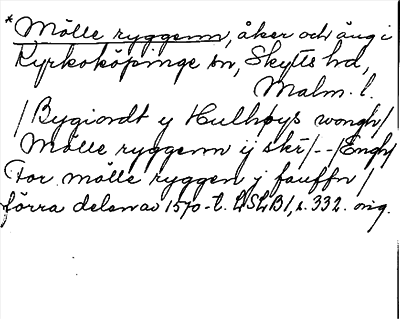 * Mölle ryggenn, åker och äng i
Kyrkoköpinge sn, Skytts hd,
Malm. l.
/Bygiordt y Hulhøys wongh/
Mölle ryggenn ij skr/--/Engh/
For mölle ryggen j fauffn/
förra delen av 1570-t. LSLB1, s. 332. orig.